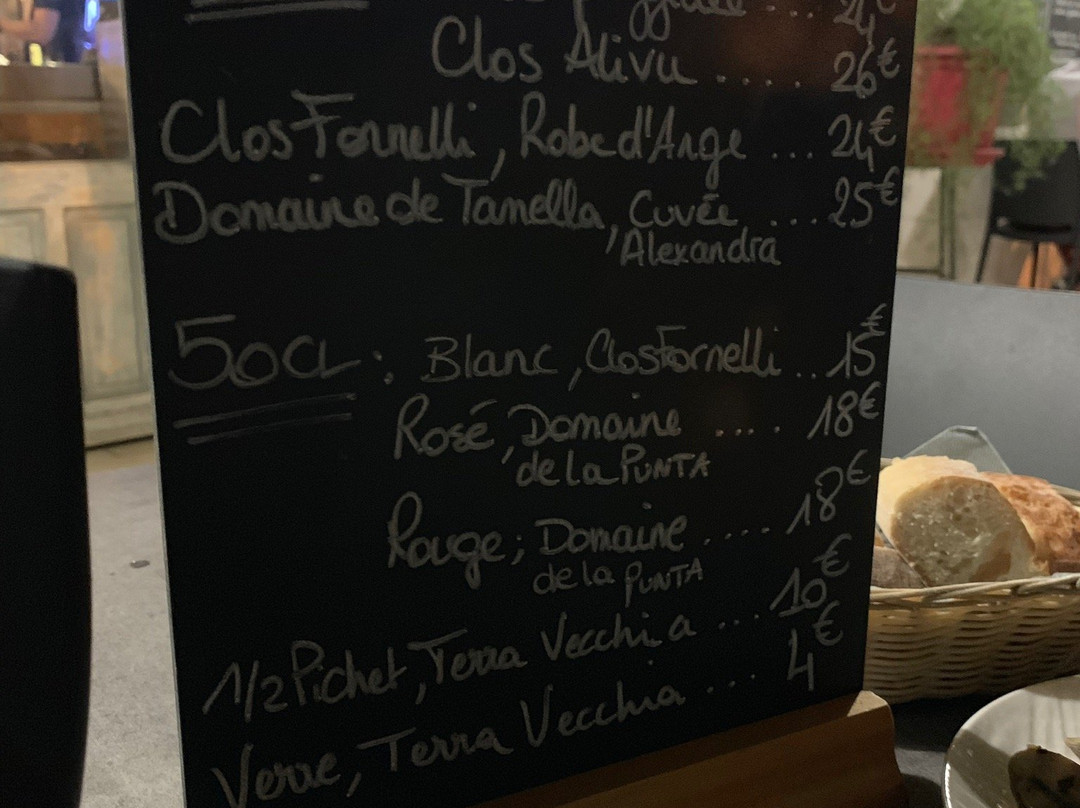 ... 24€
Clos Alivu ..... 26€
Clos Fornelli, Robe d'Ange ... 24€
Domaine de Tanella, Cuvée ... 25€
Alexandra
50CL : Blanc, Clos Fornelli .. 15€
Rosé, Domaine .... 18€
de la PUNTA
Rouge; Domaine .... 18€
de la PUNTA
1/2 Pichet, Terra Vecchia ... 10€
Verre, Terra Vecchia ... 4€